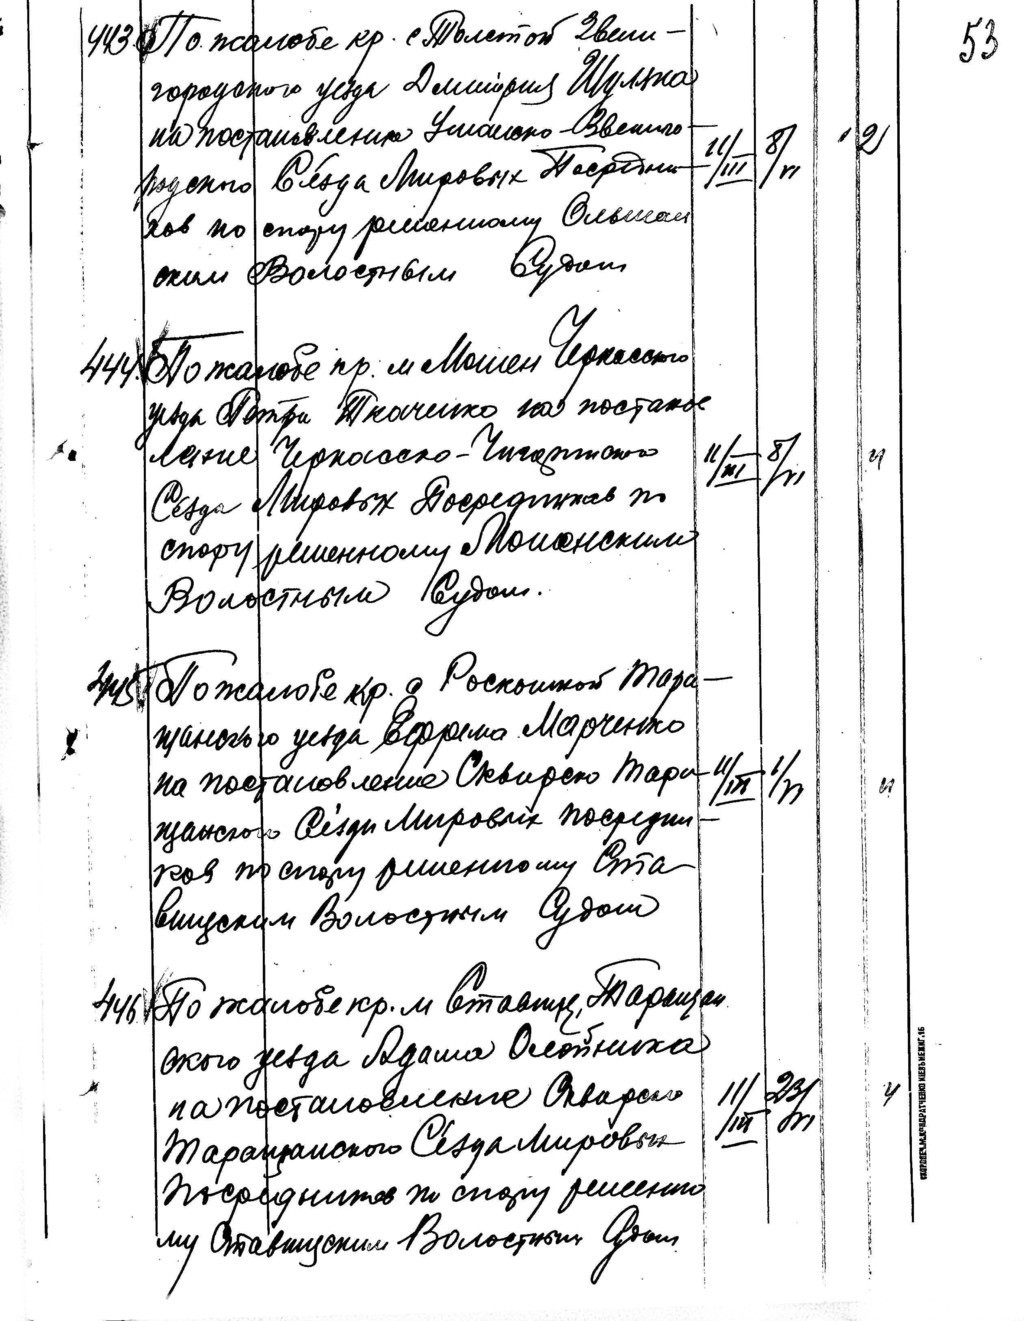 53
443 По жалобе кр. с Толстой Звени-
городского уезда Дмитрия Шуляка
на постановление Уманско-Звениго-
родского Съезда Мировых Посредни- 11/III 8/VI " 2
ков по спору решенному Ольшан
ским Волостным Судом
444. По жалобе кр. м Мошен Черкасского
уезда Петра Ткаченко на постанов
ление Черкасско-Чигиринского 11/III 8/VI ч
Съезда Мировых Посредников по
спору решенному Мошенским
Волостным Судом.
445 По жалобе кр. с Роскошной Тара-
щанского уезда Ефрема Марченко
на постановление Сквирско Тара- 11/III 1/VI ч
щанского Съезда Мировых Посредни-
ков по спору решенному Ста-
вищским Волостным Судом
446 По жалобе кр. м Ставищ, Таращан
ского уезда Адама Олейника
на постановление Сквирско 11/III 23/VI ч
Таращанского Съезда Мировых
Посредников по спору решенно
му Ставищским Волостным Судом